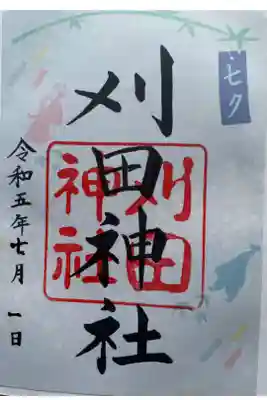 七夕
刈田神社
刈田
神社
令和五年七月一日